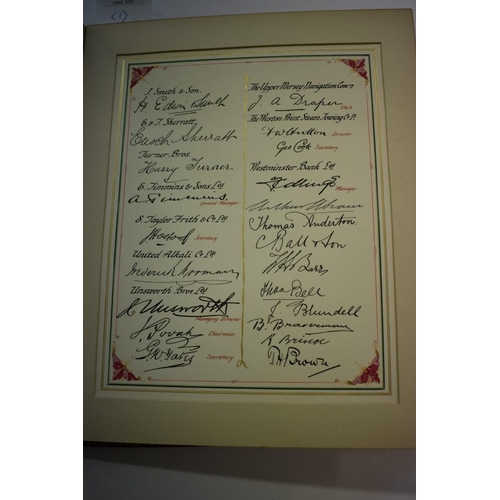 (1)
J. Smith & Son.
H Edwin Smith
E. & T. Sherratt.
Enoch Sherratt
Turner Bros.
Harry Turner
E. Timmins & Sons Ltd
A Timmins
General Manager
S. Taylor Frith & Co Ltd
Secretary
United Alkali Co Ltd
Frederick Norman
Unsworth Bros Ltd
J Unsworth
Managing Director
J. Povah
Chairman
G. W. Yates
Secretary
The Upper Mersey Navigation Comrs
J. A Draper
Clerk
The Weston Point Steam Towing Co Ltd.
Director
Geo Cook
Secretary
Westminster Bank Ltd
Manager
Thomas Anderton
C Ball & Son
Thos Bell
J. Blundell
B. Braverman
R Briscoe
T H Brown